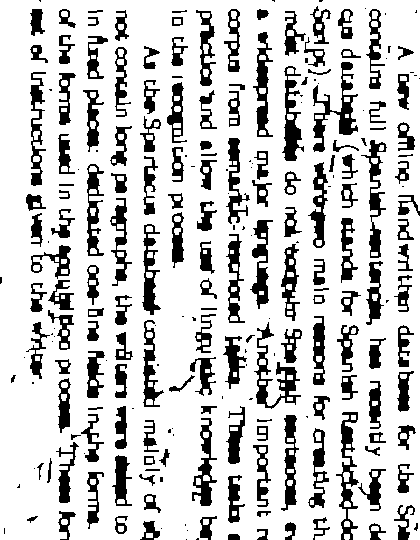 A new offline handwritten database for the Spa
contains full Spanish sentences, has recently been d
database which stands for Spanish Restricted-do
There were two main reasons for creating th
most databases do not contain Spanish sentences, ev
a widespread major language. Another important r
corpus from semantic-restricted tasks. These tasks a
practice and allow the use of linguistic knowledge be
in the recognition process.
As the Spartacus database consisted mainly of
not contain long paragraphs, the writers were asked to
in fixed places: dedicated one-line fields in the forms.
of the forms used in the acquisition process. These for
set of instructions given to the writer.